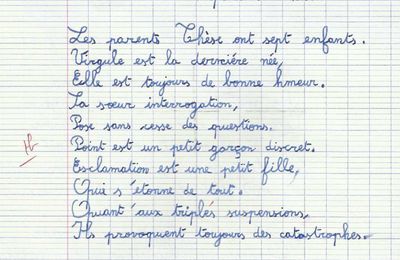 Les parents Thèse ont sept enfants.
Virgule est la dercière née,
Eille est toujours de bonne hmeur.
Ta sœur interrogation,
Pose sans cesse des questions.
Point est un petit garçon discret.
Esclamation est une petit fille,
Qui s'étonne de tout.
Quant aux triplés suspensions,
Ils provoquent toujours des catastrophes.
Tb